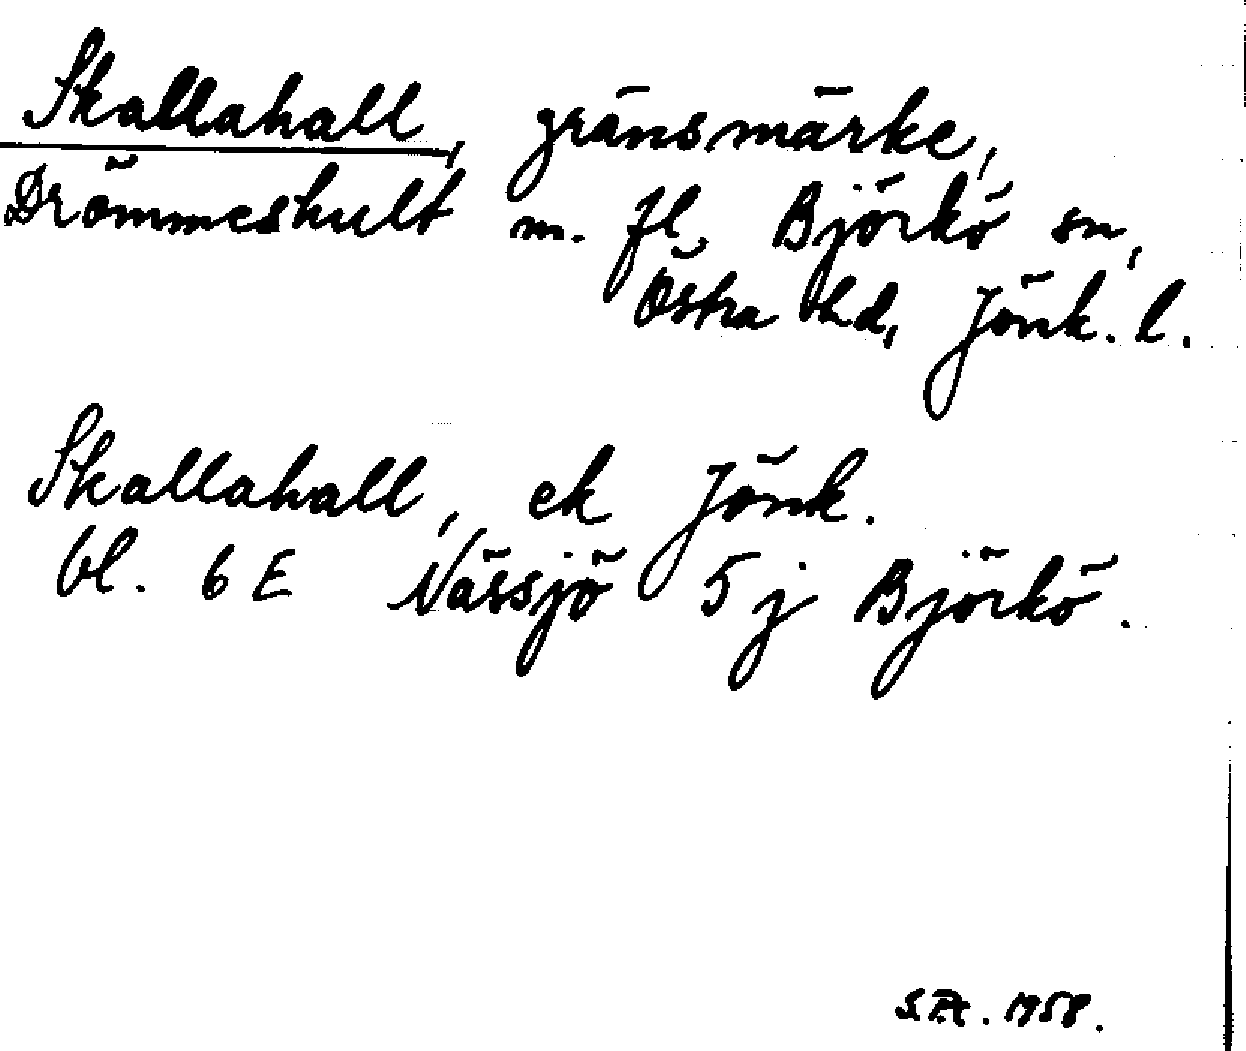 Skallahall, gränsmärke,
Drömmeshult m. fl. Björkö sn,
Östra hd, Jönk. l.
Skallahall, ek Jönk.
bl. 6 E Nässjö 5 j Björkö.
1958.